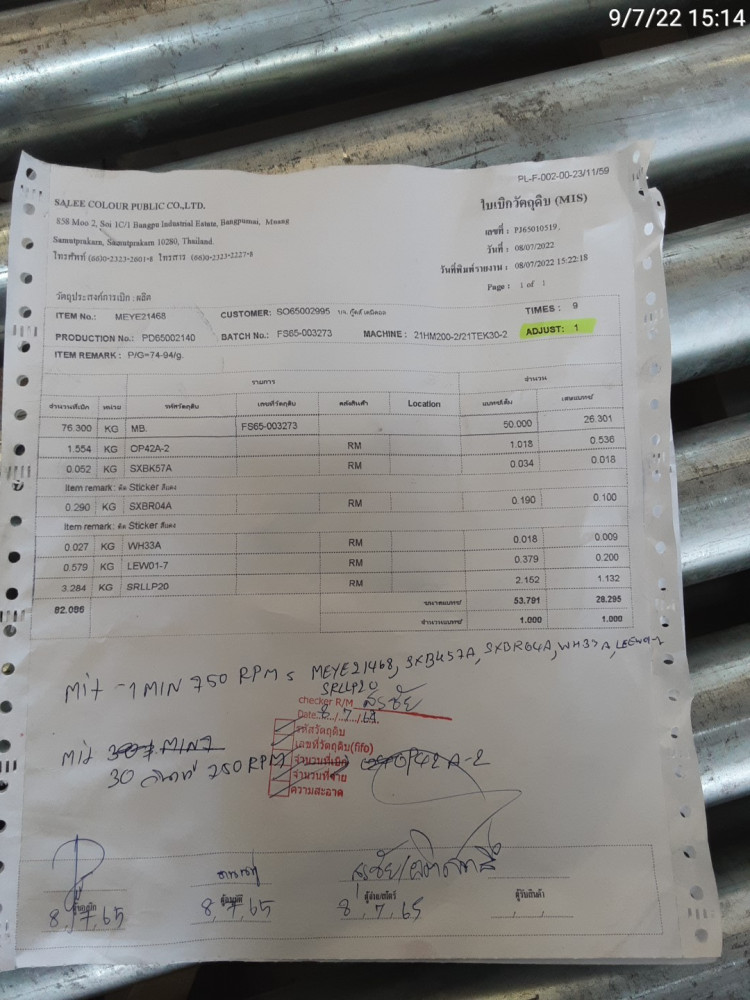 9/7/22 15:14
PL-F-002-00-23/11/59
SALEE COLOUR PUBLIC CO.,LTD.
858 Moo 2, Soi 1C/1 Bangpu Industrial Estate, Bangpumai, Muang
Samutprakarn, Samutprakarn 10280, Thailand.
โทรศัพท์ (66)0-2323-2601-8 โทรสาร (66)0-2323-2227-8
ใบเบิกวัตถุดิบ (MIS)
เลขที่ : PJ65010519.
วันที่ : 08/07/2022
วันที่พิมพ์รายงาน : 08/07/2022 15:22:18
Page : 1 of 1
วัตถุประสงค์การเบิก : ผลิต
ITEM No.: MEYE21468 CUSTOMER: SO65002995 TIMES : 9
PRODUCTION No.: PD65002140 BATCH No.: FS65-003273 MACHINE : 21HM200-2/21TEK30-2 ADJUST: 1
ITEM REMARK : P/G=74-94/g.
รายการ จำนวน
จำนวนที่เบิก หน่วย รหัสวัตถุดิบ เลขที่วัตถุดิบ คลังสินค้า Location แบทช์เต็ม เศษแบทช์
76.300 KG MB. FS65-003273 50.000 26.301
1.554 KG OP42A-2 RM 1.018 0.536
0.052 KG SXBK57A RM 0.034 0.018
Item remark : ติด Sticker สีแดง
0.290 KG SXBR04A RM 0.190 0.100
Item remark : ติด Sticker สีแดง
0.027 KG WH33A RM 0.018 0.009
0.579 KG LEW01-7 RM 0.379 0.200
3.284 KG SRLLP20 RM 2.152 1.132
82.086 ขนาดแบทช์ 53.791 28.295
จำนวนแบทช์ 1.000 1.000
Mix -1 MIN 750 RPM = MEYE21468, SXBK57A, SXBR04A, WH33A, LEW01-7
SRLLP20
checker R/M
Date 8 / 7 / 65
รหัสวัตถุดิบ
เลขที่วัตถุดิบ(fifo)
จำนวนที่เบิก
จำนวนที่จ่าย
ความสะอาด
Mix
30 วินาที 750 RPM OP42A-2
ผู้อนุมัติ ผู้รับสินค้า
8, 7, 65 8, 7, 65 8, 7, 65